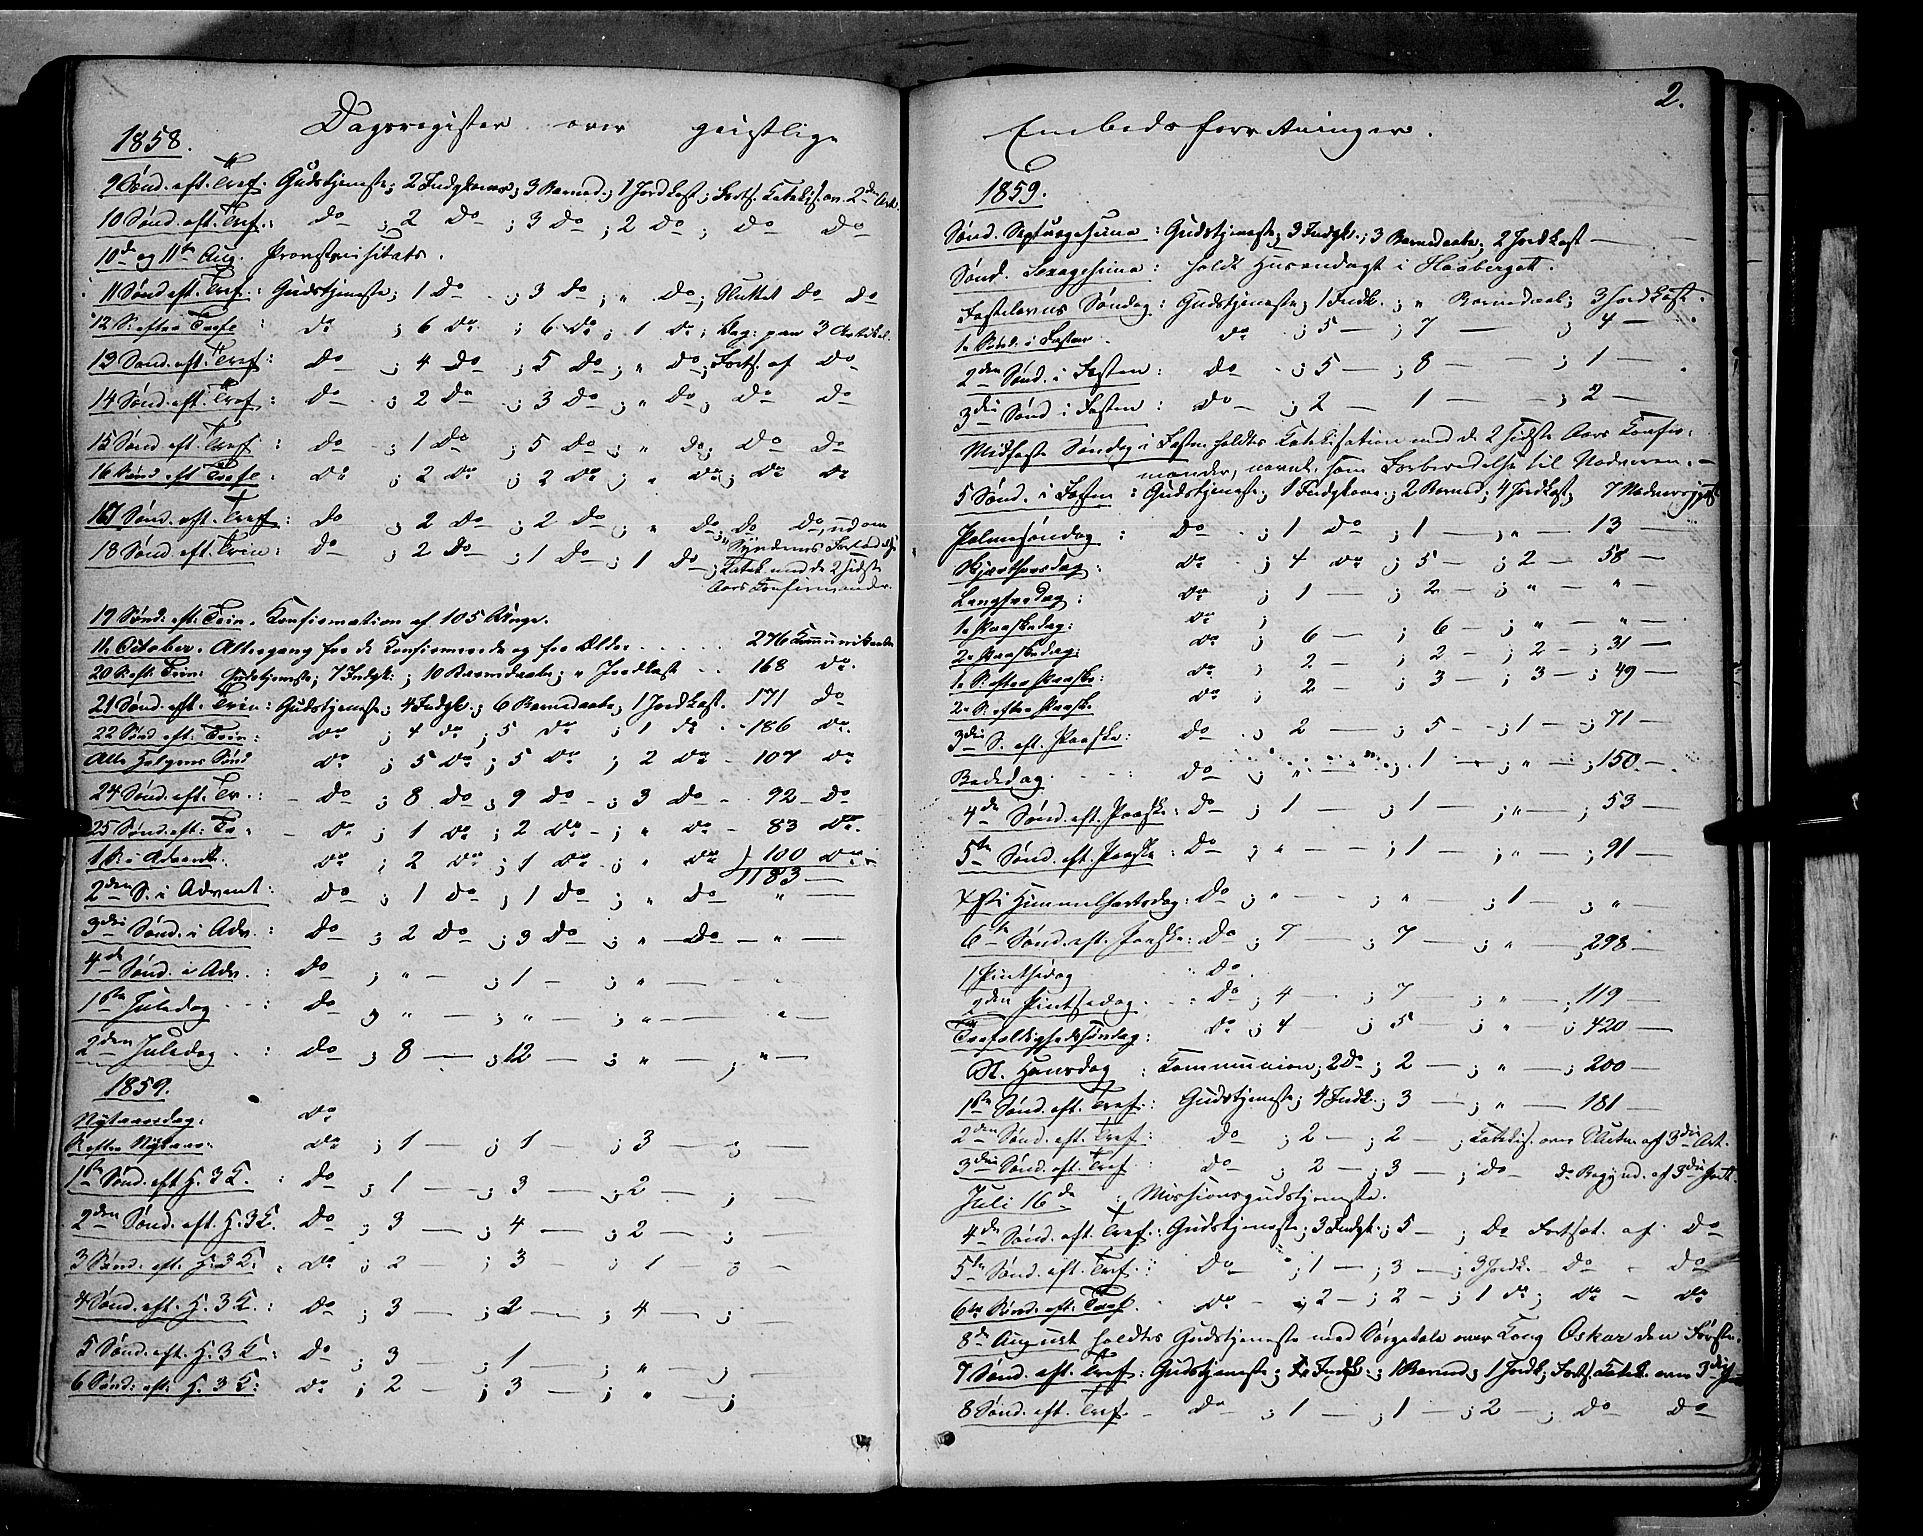 Dagsregister over geistlige
1858.
9 Sønd. eft. Tref. Gudstjeneste; 2 Indgkone; 3 Barned.; 1 Jordkast; Forts. Katekis. ov. 2den Art.
10 Sønd. eft. Tref.: Do ; 2 Do ; 3 Do ; 2 Do ; Do Do
10de og 11te Aug. Provstevisitats.
11 Sønd. eft. Tref.: Gudstjeneste; 1 Do ; 3 Do ; " Do ; Sluttet Do Do
12 S. efter Trefol : do ; 6 do ; 6 do ; 1 do ; Beg: paa 3 Artikel.
13 Sønd. eft. Tref: Do ; 4 Do ; 5 Do ; " Do ; Forts. af Do
14 Sønd. eft. Tref. : Do ; 2 Do ; 3 Do ; " Do ; Do Do
15 Sønd. eft. Tref. : Do ; 1 Do ; 5 Do ; " Do ; Do Do
16 Sønd. eft Trefol : do ; 2 do ; 2 do ; " do ; do do
17 Sønd. eft. Tref : Do ; 2 Do ; 2 Do ; " Do ; Do Do, ud om
18 Sønd. eft. Trin : Do ; 2 Do ; 1 Do ; 1 Do ; "Syndens
Katek. med de 2 sidste
Aars Konfirmander.
19 Sønd. eft. Trin. Konfirmation af 105 Unge.
11. October. Altergang for de Konfirmerede og for Ældre . . . . . 276 Kommunikanter
20 S. eft. Trin: Gudstjeneste; 7 Indgk ; 10 Barnedaabe; " Jordkast . . 168 do.
21 Sønd. eft. Trin : Gudstjeneste; 4 Indgk ; 6 Barnedaabe; 1 Jordkast. 171 Do
22 Sønd eft. Trin : do ; 4 do ; 5 do ; 1 do . 186 do.
Alle Helgens Sønd do ; 5 do ; 5 do ; 2 do - 107 do
24 Sønd. eft. Tr. : - Do ; 8 Do ; 9 Do - ; 3 Do - 92 - Do
25 Sønd. eft: Tr. - do ; 1 do ; 2 do - ; " do - 83 do.
1 S. i Advent. do ; 2 do ; 1 do ; " do 100 do
1183 —
2den S. i Advent : Do ; 1 Do ; 1 Do ; " Do "
3die Sønd. i Adv. : Do ; 2 Do ; 3 Do ; " Do — " —
4de Sønd. i Adv. : Do ; " — ; 1 — ; " —
1ste Juledag . . : Do ; " — ; " — ; " — " —
2den Juledag . : Do ; 8 — ; 12 — ; " — ; " —
1859.
Nytaarsdag: do
S. efter Nytaar: do ; 1 — ; 1 — ; 3 — ;
1ste Sønd. eft H. 3 K. : Do ; 1 — ; 3 — ; 2 — ; —
2den Sønd. eft. H. 3 K. Do ; 3 — ; 4 — ; 2 — ; —
3 Sønd. eft. H. 3 K. do ; 2 — ; 3 — ; 1 — ; —
4 Sønd. eft. H. 3 K. : Do ; 3 — ; 2 — ; 4 — ; —
5 Sønd. eft. H. 3 K. : Do ; 3 — ; 1 — ; " — ; —
6 Sønd. eft. H. 3 K: do ; 2 — ; 3 — ; " — ;
2.
Embedsforretninger.
1859.
Sønd. Septuagesima : Gudstjeneste; 3 Indgk.; 3 Barnedaabe; 2 Jordkast —
Sønd. Sexagesima : holdt Husandagt i
Fastelavns Søndag : Gudstjeneste; 1 Indk. ; " Barnedaab; 3 Jordkast.
1. Sønd. i Fasten . do ; 5 — ; 7 — ; 4 —
2den Sønd. i Fasten : Do ; 5 — ; 8 — ; 1 —
3die Sønd i Fasten : Do — ; 2 — 1 — ; 2 —
Midfaste Søndag i Fasten holdtes Katekisation med de 2 sidste Aars Konfir-
mander, navnl. som Forberedelse til Nadveren. —
5 Sønd. i Fasten : Gudstjeneste; 1 Indgkone ; 2 Barned ; 4 Jordkast;
Palmesøndag : Do ; 1 Do ; 1 — ; " — 13 —
Skjærthorsdag : do ; 4 do ; 5 — ; 2 — 58 —
Langfredag : do ; 1 — ; 2 — ; " — " —
1. Paaskedag: do ;
2. Paaskedag: do ; 6 — ; 6 — ; " — " —
1. S. efter Paaske: do ; 2 — ; 2 — ; 2 — ; 31 —
2. S. efter Paaske do ; 2 — ; 3 — ; 3 — ; 49 —
3die S. eft. Paaske : Do ; 2 — ; 5 — ; 1 — ; 71 —
Bededag . . . : Do ; " — ; 1 — ; " — ; 150 —
4de Sønd. eft. Paaske : Do ; 1 — ; 1 — ; " — ; 53 —
5te Sønd. eft. Paaske : Do ; " — ; 1 — ; " — ; 91 —
Kristi Himmelfartsdag : Do ; " — ; " — ; 1 — ; " —
6te Sønd. eft. Paaske : Do ; 7 — ; 7 — ; " — ; 298 —
1 Pintsedag " Do .
2den Pintsedag . . : Do ; 4 — ; 7 — ; " — ; 119 —
Trefoldighedssøndag : Do ; 4 ; 5 — ; " ; 420 —
St. Hansdag : Kommunion; 2 Do ; 2 — ; " — ; 200 —
1ste Sønd. eft. Tref. : Gudstjeneste; 4 Indk. ; 3 — ; " — 181 —
2den Sønd. eft. Tref : do ; 2 — ; 2 — ; Katekis. over Slutn. af 3die Art.
3die Sønd. eft. Tref : Do ; 2 — ; 3 — ; Do — do Begynd. af 3die Part.
Juli 16de : Missionsgudstjeneste.
4de Sønd. eft. Tref. : Gudstjeneste; 3 Indgk. ; 5 — ; Do Fortsat. af Do
5te Sønd. eft. Tref. : Do — ; 1 — ; 3 — ; 3 Jordk. — Do — Do
6te Sønd. eft. Tref. do — ; 2 — ; 2 — ; 1 do ; do — do
8de August holdtes Gudstjeneste med Sørgetale over Kong Oskar den Første.
7 Sønd. eft. Tref : Gudstjeneste; Indgk. ; 1 Barned ; 1 Jordk ; Forts. Katek. over 3die
8 Sønd. eft. Tref. — Do ; 1 — ; 1 — ; 2 — ; Do Do